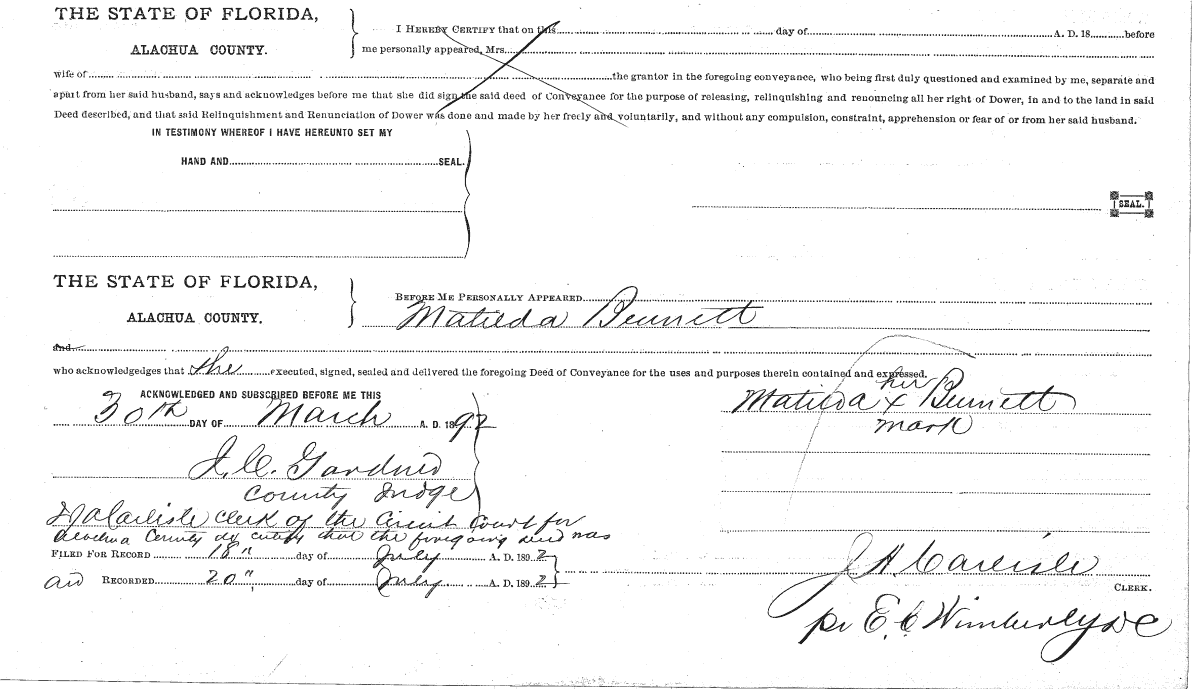 THE STATE OF FLORIDA,
ALACHUA COUNTY.
I HEREBY CERTIFY that on this day of A. D. 18 before
me personally appeared, Mrs.
wife of the grantor in the foregoing conveyance, who being first duly questioned and examined by me, separate and
apart from her said husband, says and acknowledges before me that she did sign the said deed of Conveyance for the purpose of releasing, relinquishing and renouncing all her right of Dower, in and to the land in said
Deed described, and that said Relinquishment and Renunciation of Dower was done and made by her freely and voluntarily, and without any compulsion, constraint, apprehension or fear of or from her said husband.
IN TESTIMONY WHEREOF I HAVE HEREUNTO SET MY
HAND AND SEAL.
SEAL.
THE STATE OF FLORIDA,
ALACHUA COUNTY.
BEFORE ME PERSONALLY APPEARED
Matilda Bennett
and
who acknowledgedges that she executed, signed, sealed and delivered the foregoing Deed of Conveyance for the uses and purposes therein contained and expressed.
ACKNOWLEDGED AND SUBSCRIBED BEFORE ME THIS
30th DAY OF March A. D. 1892
her
Matilda x Bennett
mark
County Judge
I J A Carlisle Clerk of the Circuit Court for
Alachua County do certify that the foregoing deed was
FILED FOR RECORD 18" day of July A. D. 1892
and RECORDED 20" day of July A. D. 1892
J A Carlisle
CLERK.
pr E. C. Wimberly DC